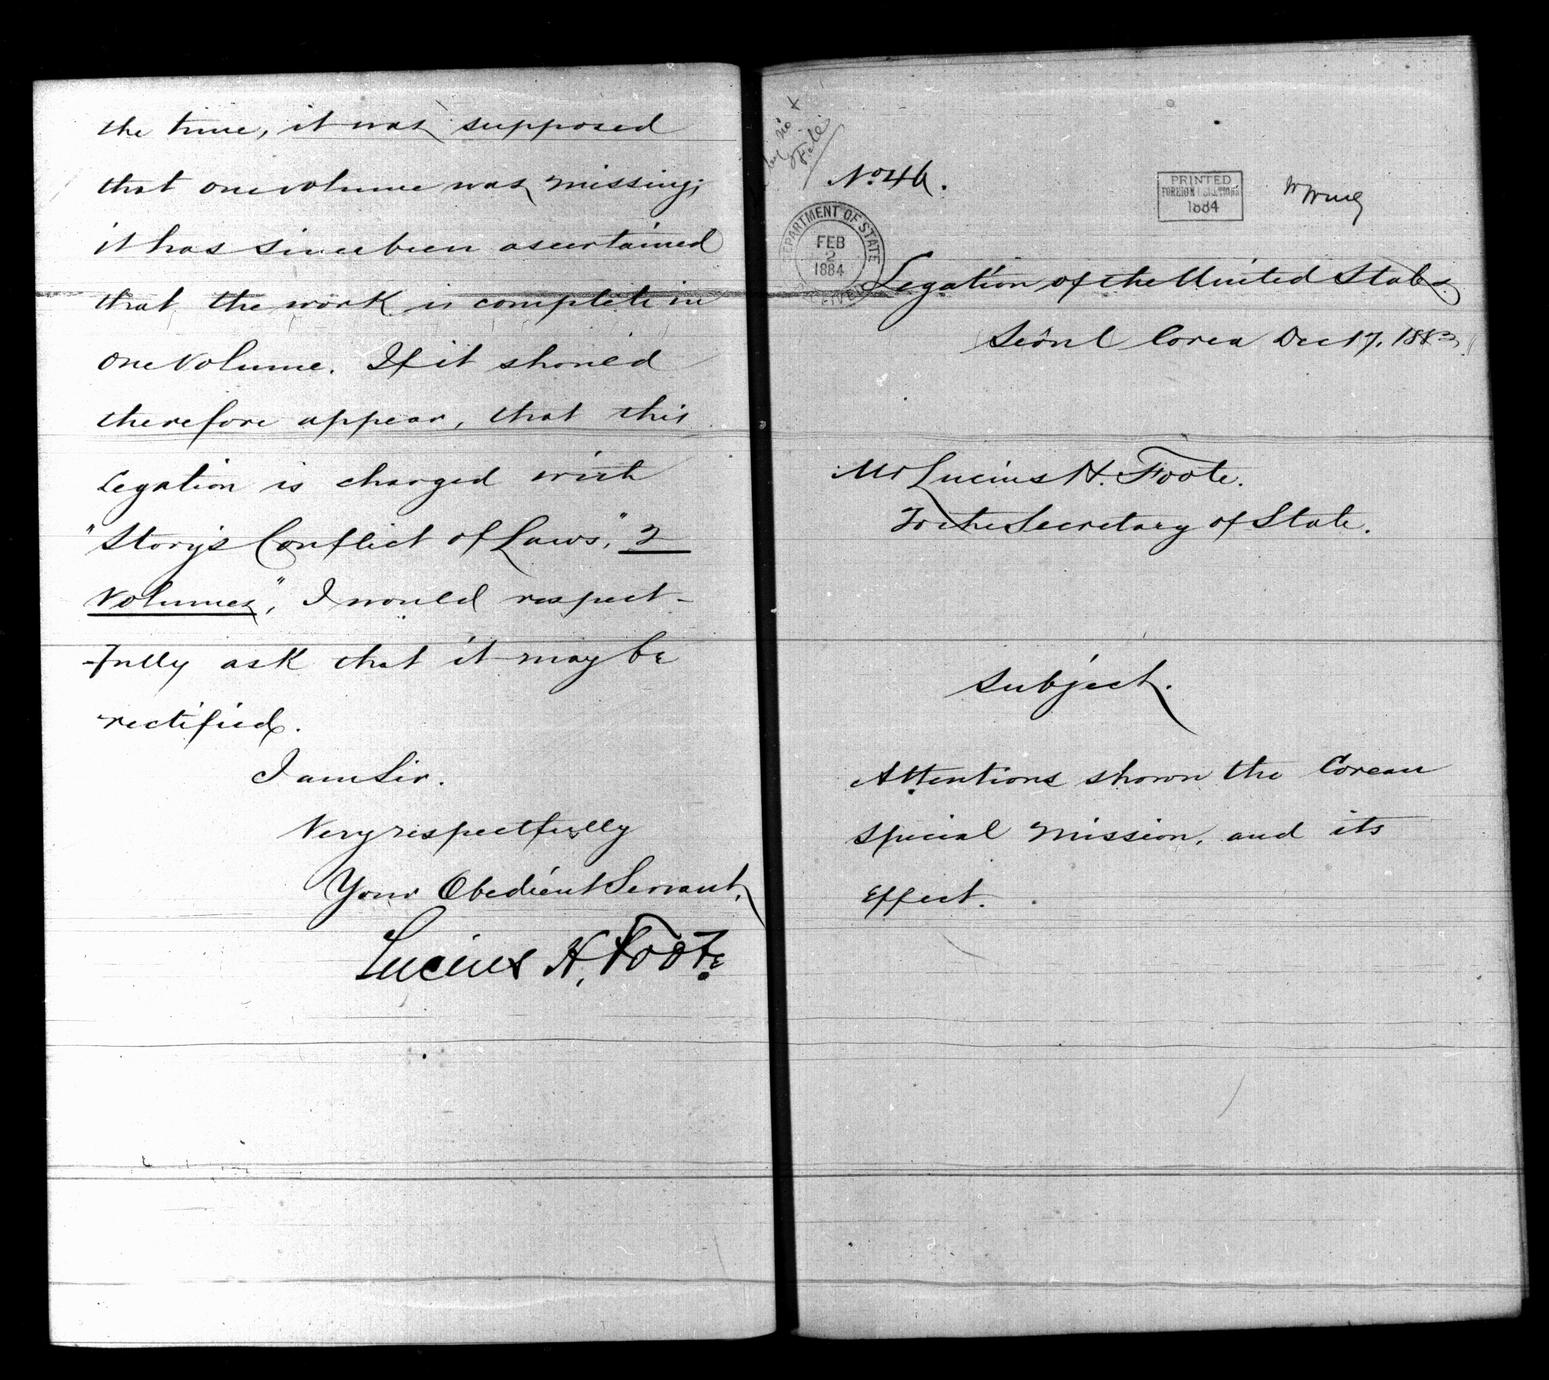 the time, it was supposed
that one volume was missing;
it has since been ascertained
that the work is complete in
one volume. If it should
therefore appear, that this
Legation is charged with
"Story's Conflict of Laws", 2
Volumes", I would respect-
-fully ask that it may be
rectified.
I am Sir.
Very respectfully
Your Obedient Servant,
Lucius H. Foote
File
No 46.
PRINTED
FOREIGN RELATIONS
1884
DEPARTMENT OF STATE
FEB
2
1884
RECEIVED
Legation of the United States
Seoul Corea Dec 17, 1883
Mr Lucius H. Foote.
To the Secretary of State.
Subject.
Attentions shown the Corean
Special Mission, and its
Effect.